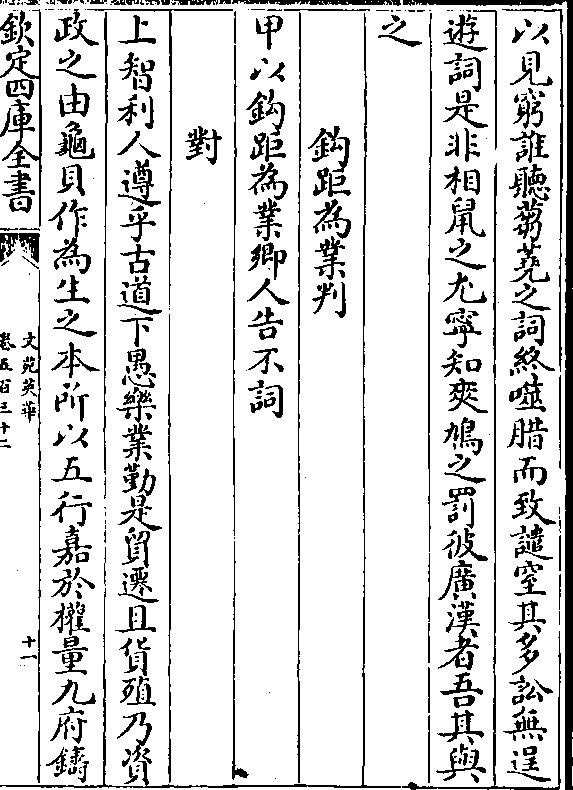 以見窮誰聽蒭蕘之詞終噬腊而致譴窒其多訟無逞
遊詞是非相鼠之尤寧知爽鳩之罰彼廣漢者吾其與
之
鈎距為業判
甲以鈎距為業鄉人告不詞
對
上智利人遵乎古道下愚樂業勤是貿遷且貨殖乃資
政之由龜貝作為生之本所以五行嘉於權量九府鑄
欽定四庫全書
文苑英華
卷五百三十二
十一